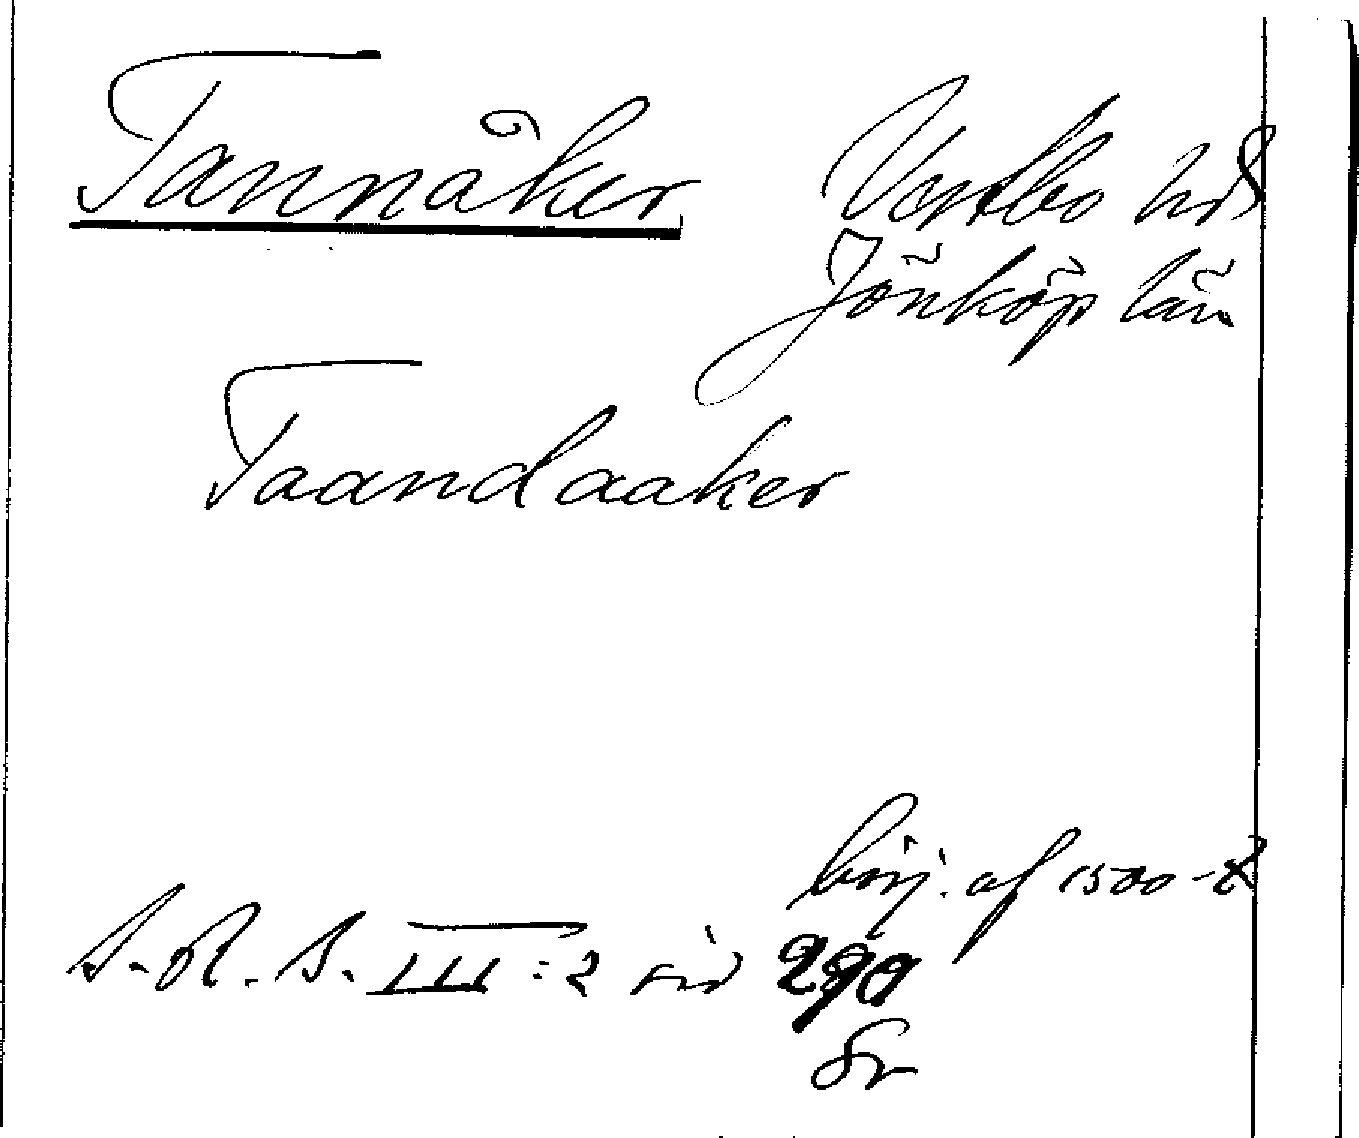 Tannåker Vestbo hd
Jönköp län
Taandaaker
börj. af 1500-t
S. R. S. III:2 sid 290
Sr